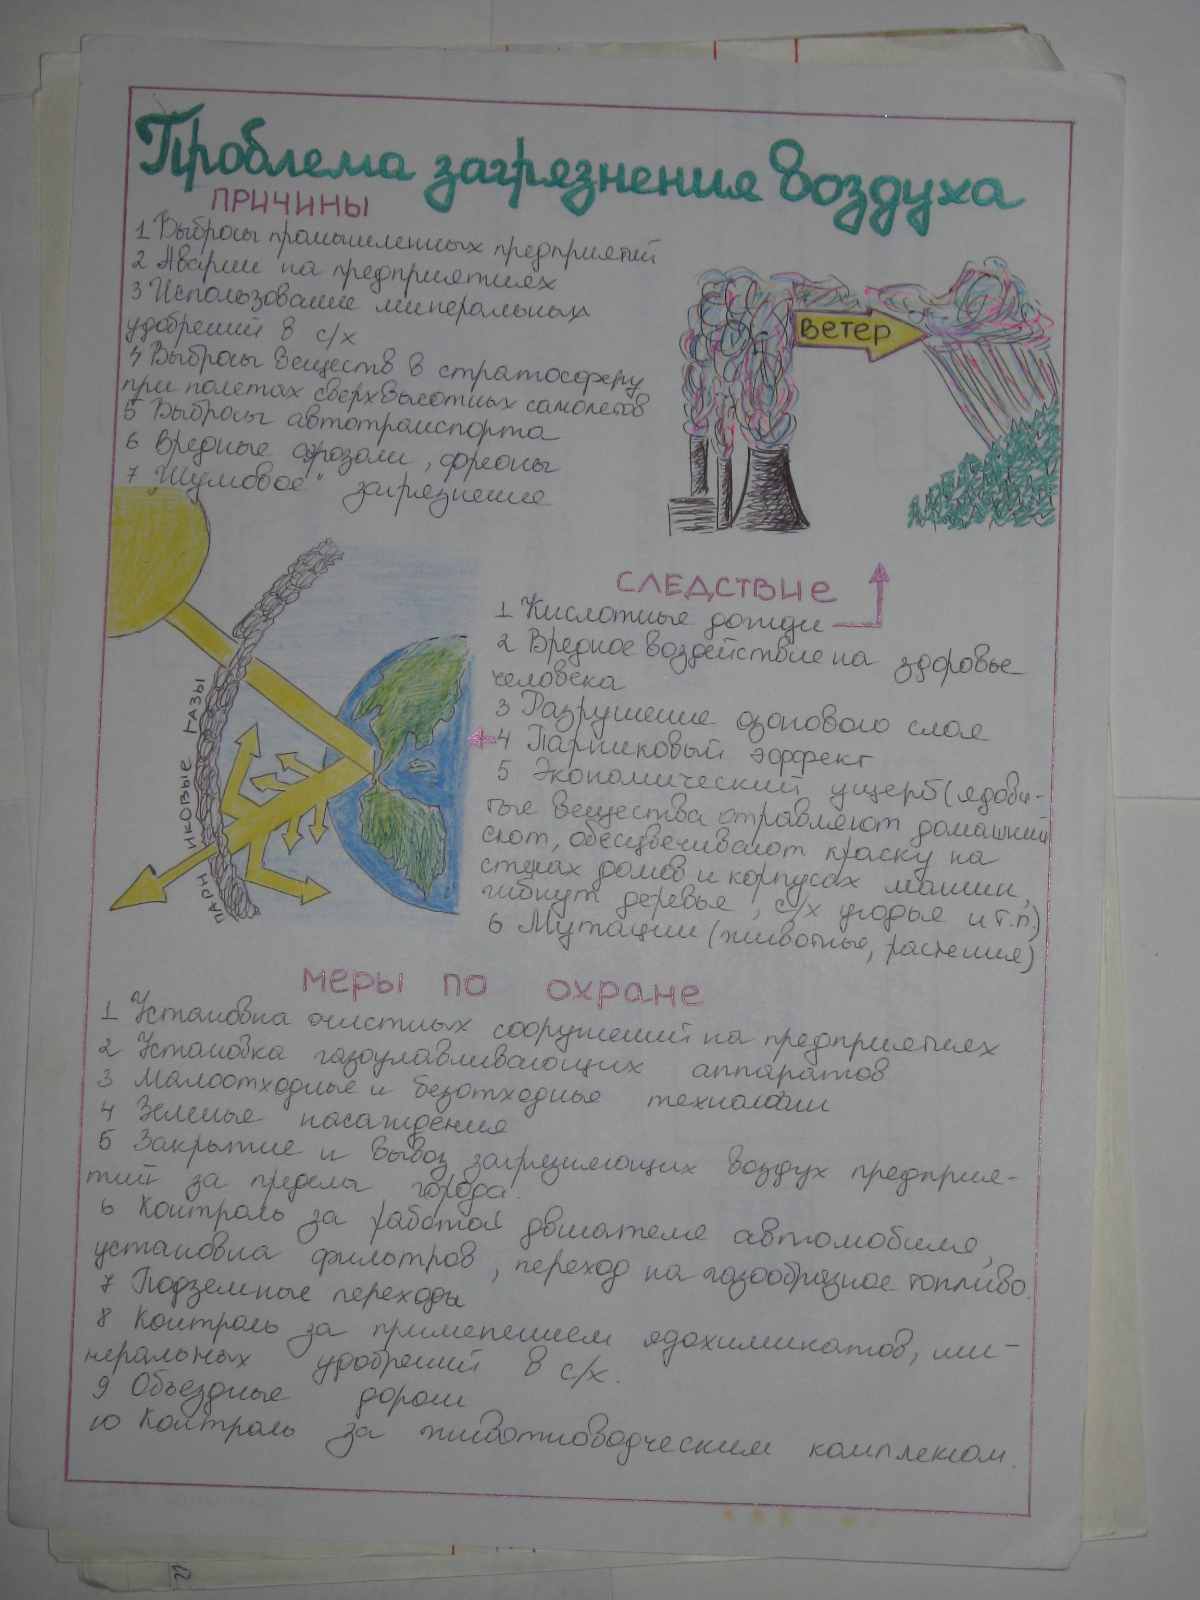 Проблема загрязнения воздуха
ПРИЧИНЫ
1 Выбросы промышленных предприятий
2 Аварии на предприятиях
3 Использование минеральных
удобрений в с/х
4 Выбросы веществ в стратосферу
при полетах сверхвысотных самолетов
5 Выбросы автотранспорта
6 Вредные аэрозоли, фреоны
7 "Шумовое" загрязнение
ВЕТЕР
СЛЕДСТВИЕ
1 Кислотные дожди
2 Вредное воздействие на здоровье
человека
3 Разрушение озонового слоя
4 Парниковый эффект
5 Экономический ущерб (ядови-
тые вещества отравляют домашний
скот, обесцвечивают краску на
стенах домов и корпусах машин,
гибнут деревья, с/х угодья и т.п.)
6 Мутации (животные, растения)
ПАРНИКОВЫЕ ГАЗЫ
МЕРЫ ПО ОХРАНЕ
1 Установка очистных сооружений на предприятиях
2 Установка газоулавливающих аппаратов
3 Малоотходные и безотходные технологии
4 Зеленые насаждения
5 Закрытие и вывоз загрязняющих воздух предприя-
тий за пределы города.
6 Контроль за работой двигателя автомобиля,
установка фильтров, переход на газообразное топливо.
7 Подземные переходы
8 Контроль за применением ядохимикатов, ми-
неральных удобрений в с/х.
9 Объездные дороги
10 Контроль за животноводческим комплексом.